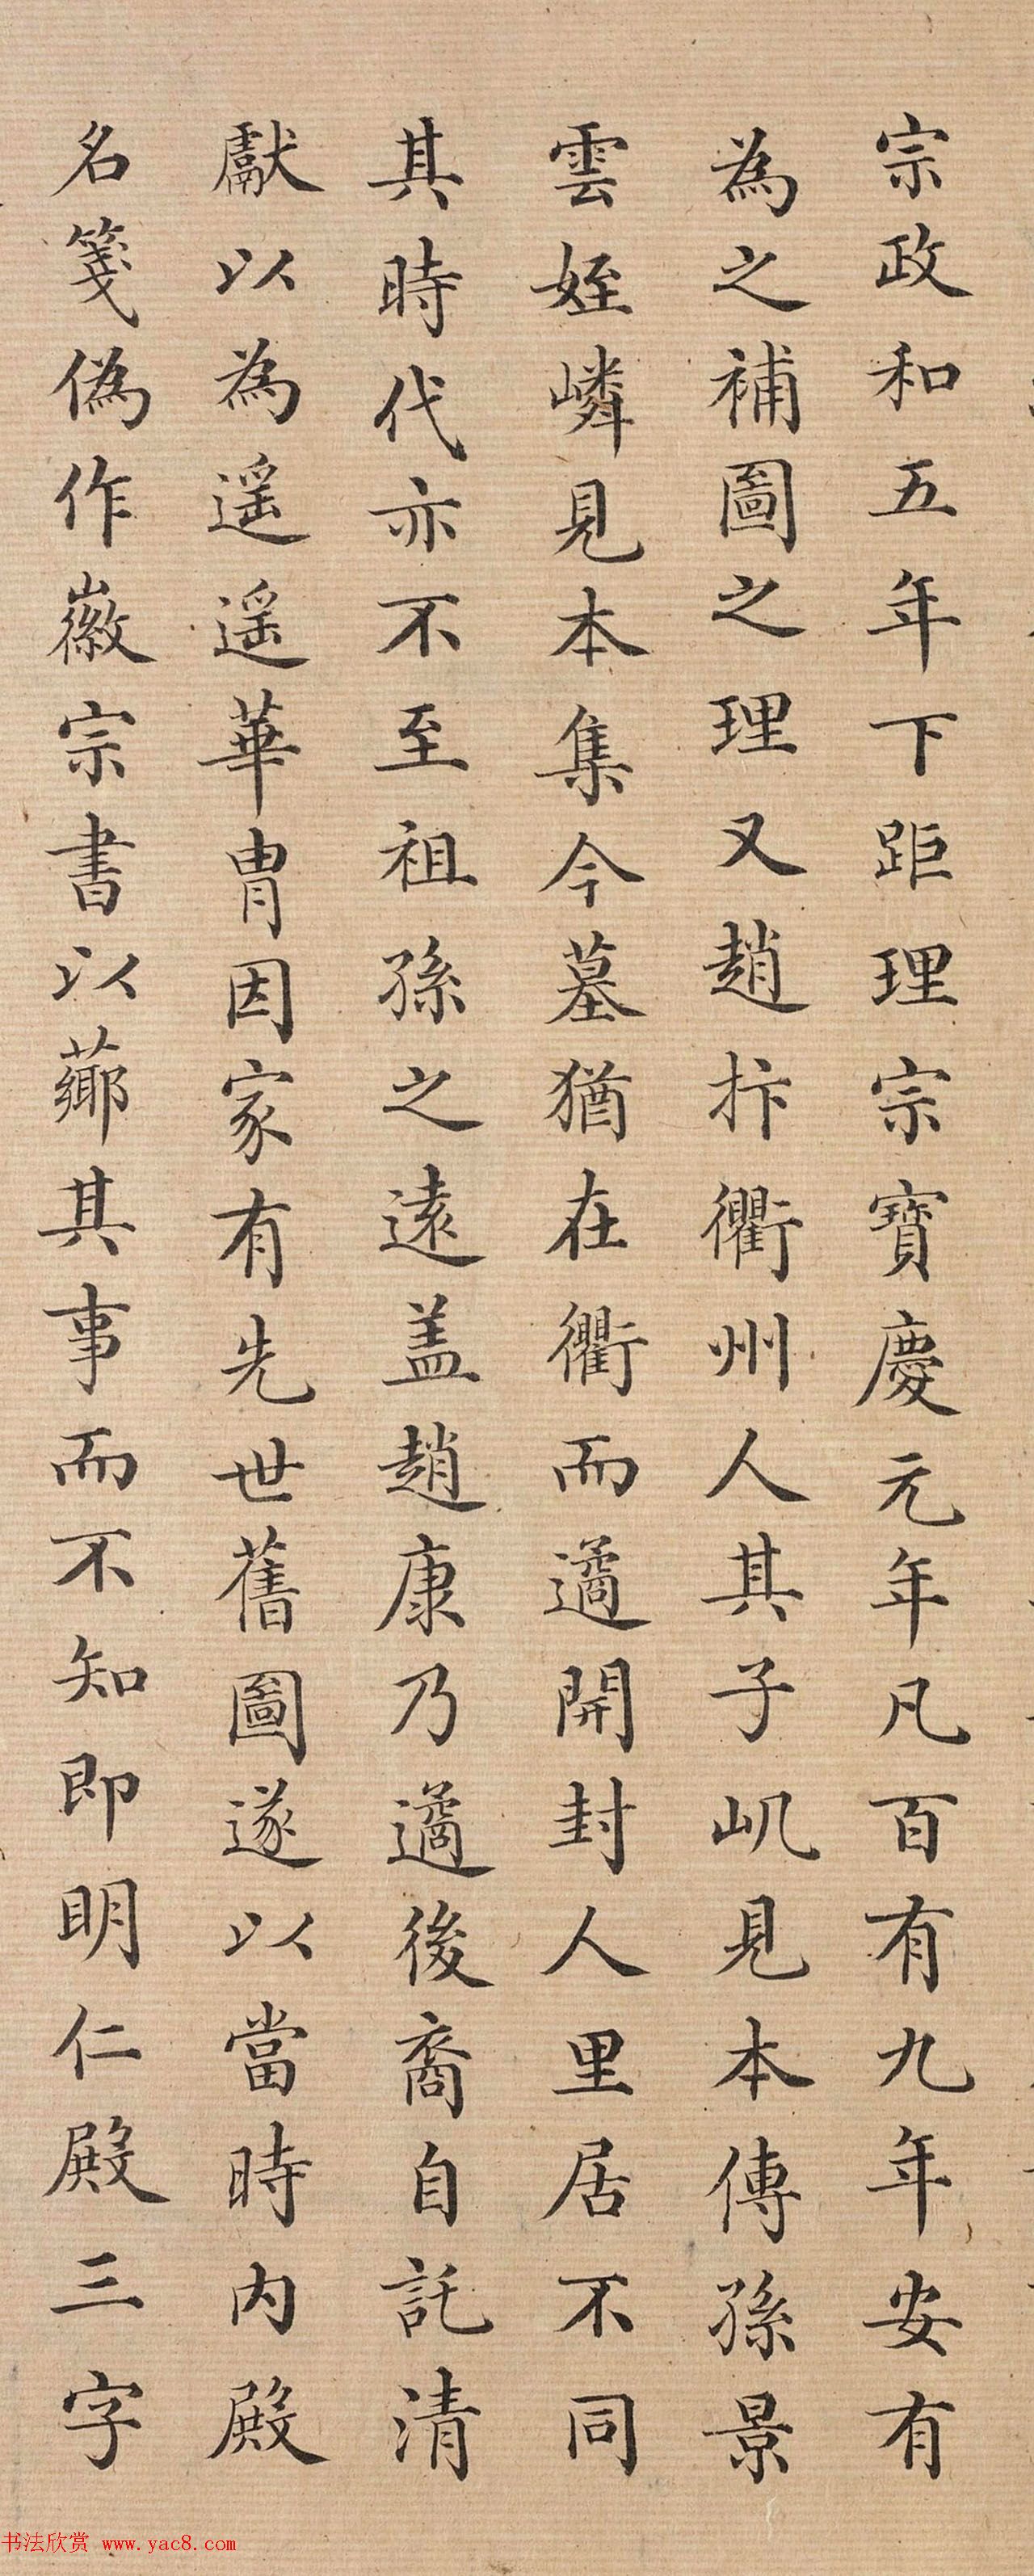 宗政和五年下距理宗寶慶元年凡百有九年安有
為之補圖之理又趙抃衢州人其子屼見本傳孫景
雲姪嶙見本集今墓猶在衢而遹開封人里居不同
其時代亦不至祖孫之遠盖趙康乃遹後裔自託清
獻以為遥遥華胄因家有先世舊圖遂以當時内殿
名箋偽作徽宗書以薌其事而不知即明仁殿三字
书法欣赏 www.yac8.com